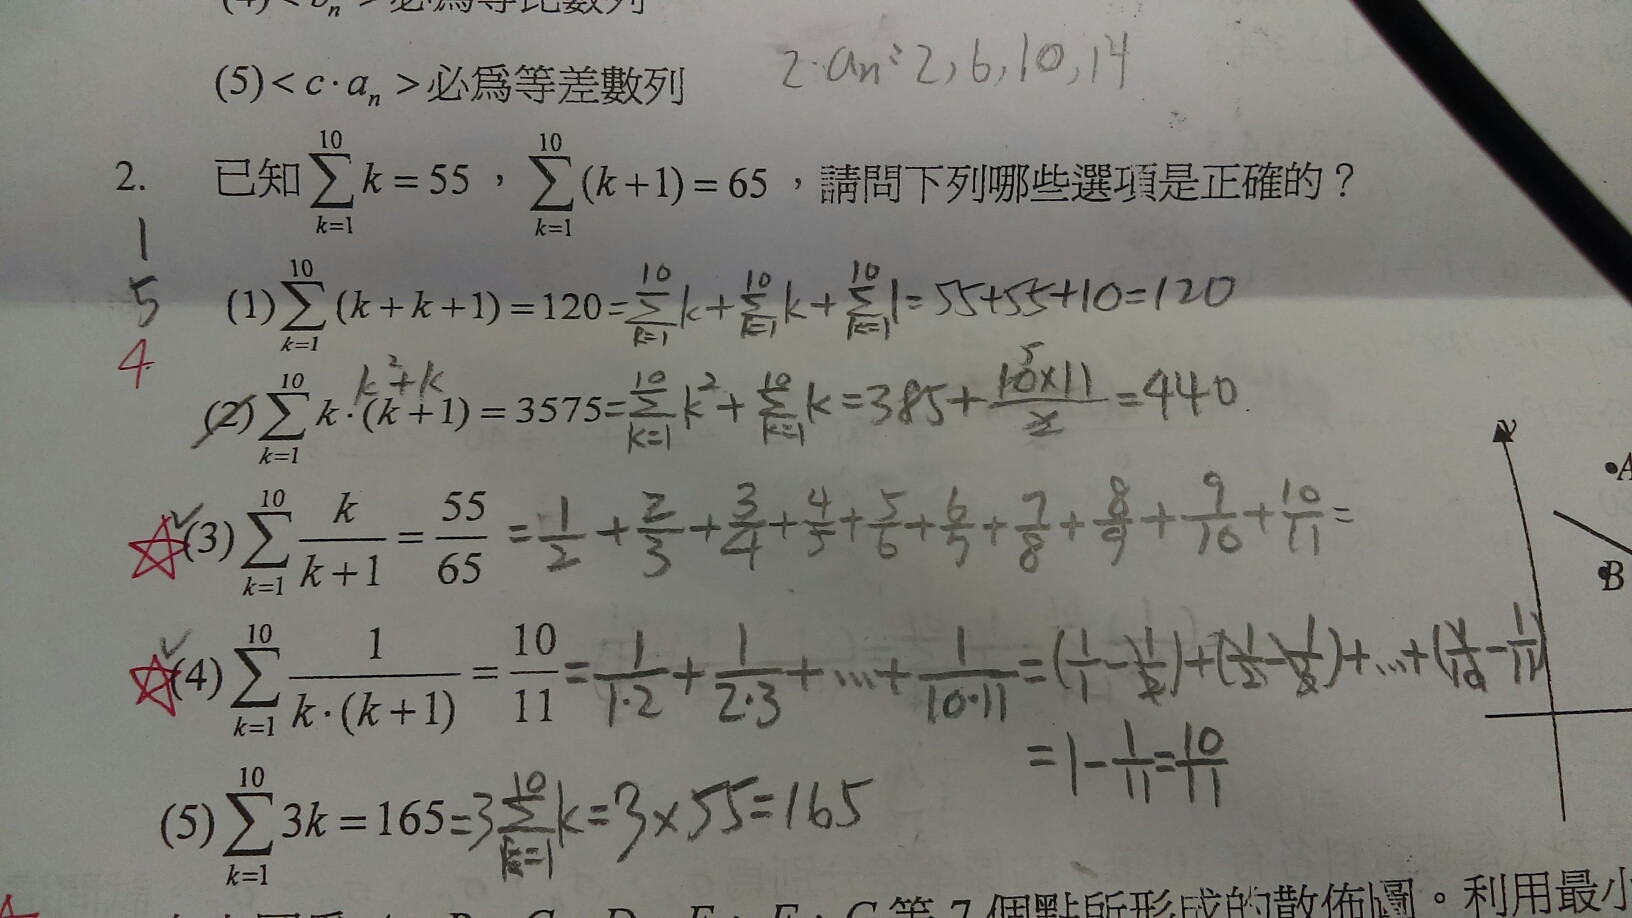 (4)< bₙ >必為等比數列
(5)< c·aₙ >必為等差數列 2·aₙ:2,6,10,14
2. 已知 \sum_{k=1}^{10} k = 55,\sum_{k=1}^{10} (k+1) = 65,請問下列哪些選項是正確的?
1
5
4
(1) \sum_{k=1}^{10} (k+k+1) = 120 = \sum_{k=1}^{10} k + \sum_{k=1}^{10} k + \sum_{k=1}^{10} 1 = 55+55+10=120
k²+k
(2) \sum_{k=1}^{10} k·(k+1) = 3575 = \sum_{k=1}^{10} k² + \sum_{k=1}^{10} k = 385 + \frac{10×11}{2} = 440
5
(3) \sum_{k=1}^{10} \frac{k}{k+1} = \frac{55}{65} = \frac{1}{2} + \frac{2}{3} + \frac{3}{4} + \frac{4}{5} + \frac{5}{6} + \frac{6}{7} + \frac{7}{8} + \frac{8}{9} + \frac{9}{10} + \frac{10}{11} =
(4) \sum_{k=1}^{10} \frac{1}{k·(k+1)} = \frac{10}{11} = \frac{1}{1·2} + \frac{1}{2·3} + ... + \frac{1}{10·11} = (\frac{1}{1} - \frac{1}{2}) + (\frac{1}{2} - \frac{1}{3}) + ... + (\frac{1}{10} - \frac{1}{11})
= 1 - \frac{1}{11} = \frac{10}{11}
(5) \sum_{k=1}^{10} 3k = 165 = 3 \sum_{k=1}^{10} k = 3×55 = 165
y
A
B
A、B、C、D、E、F、G等7個點所形成的散佈圖。利用最小